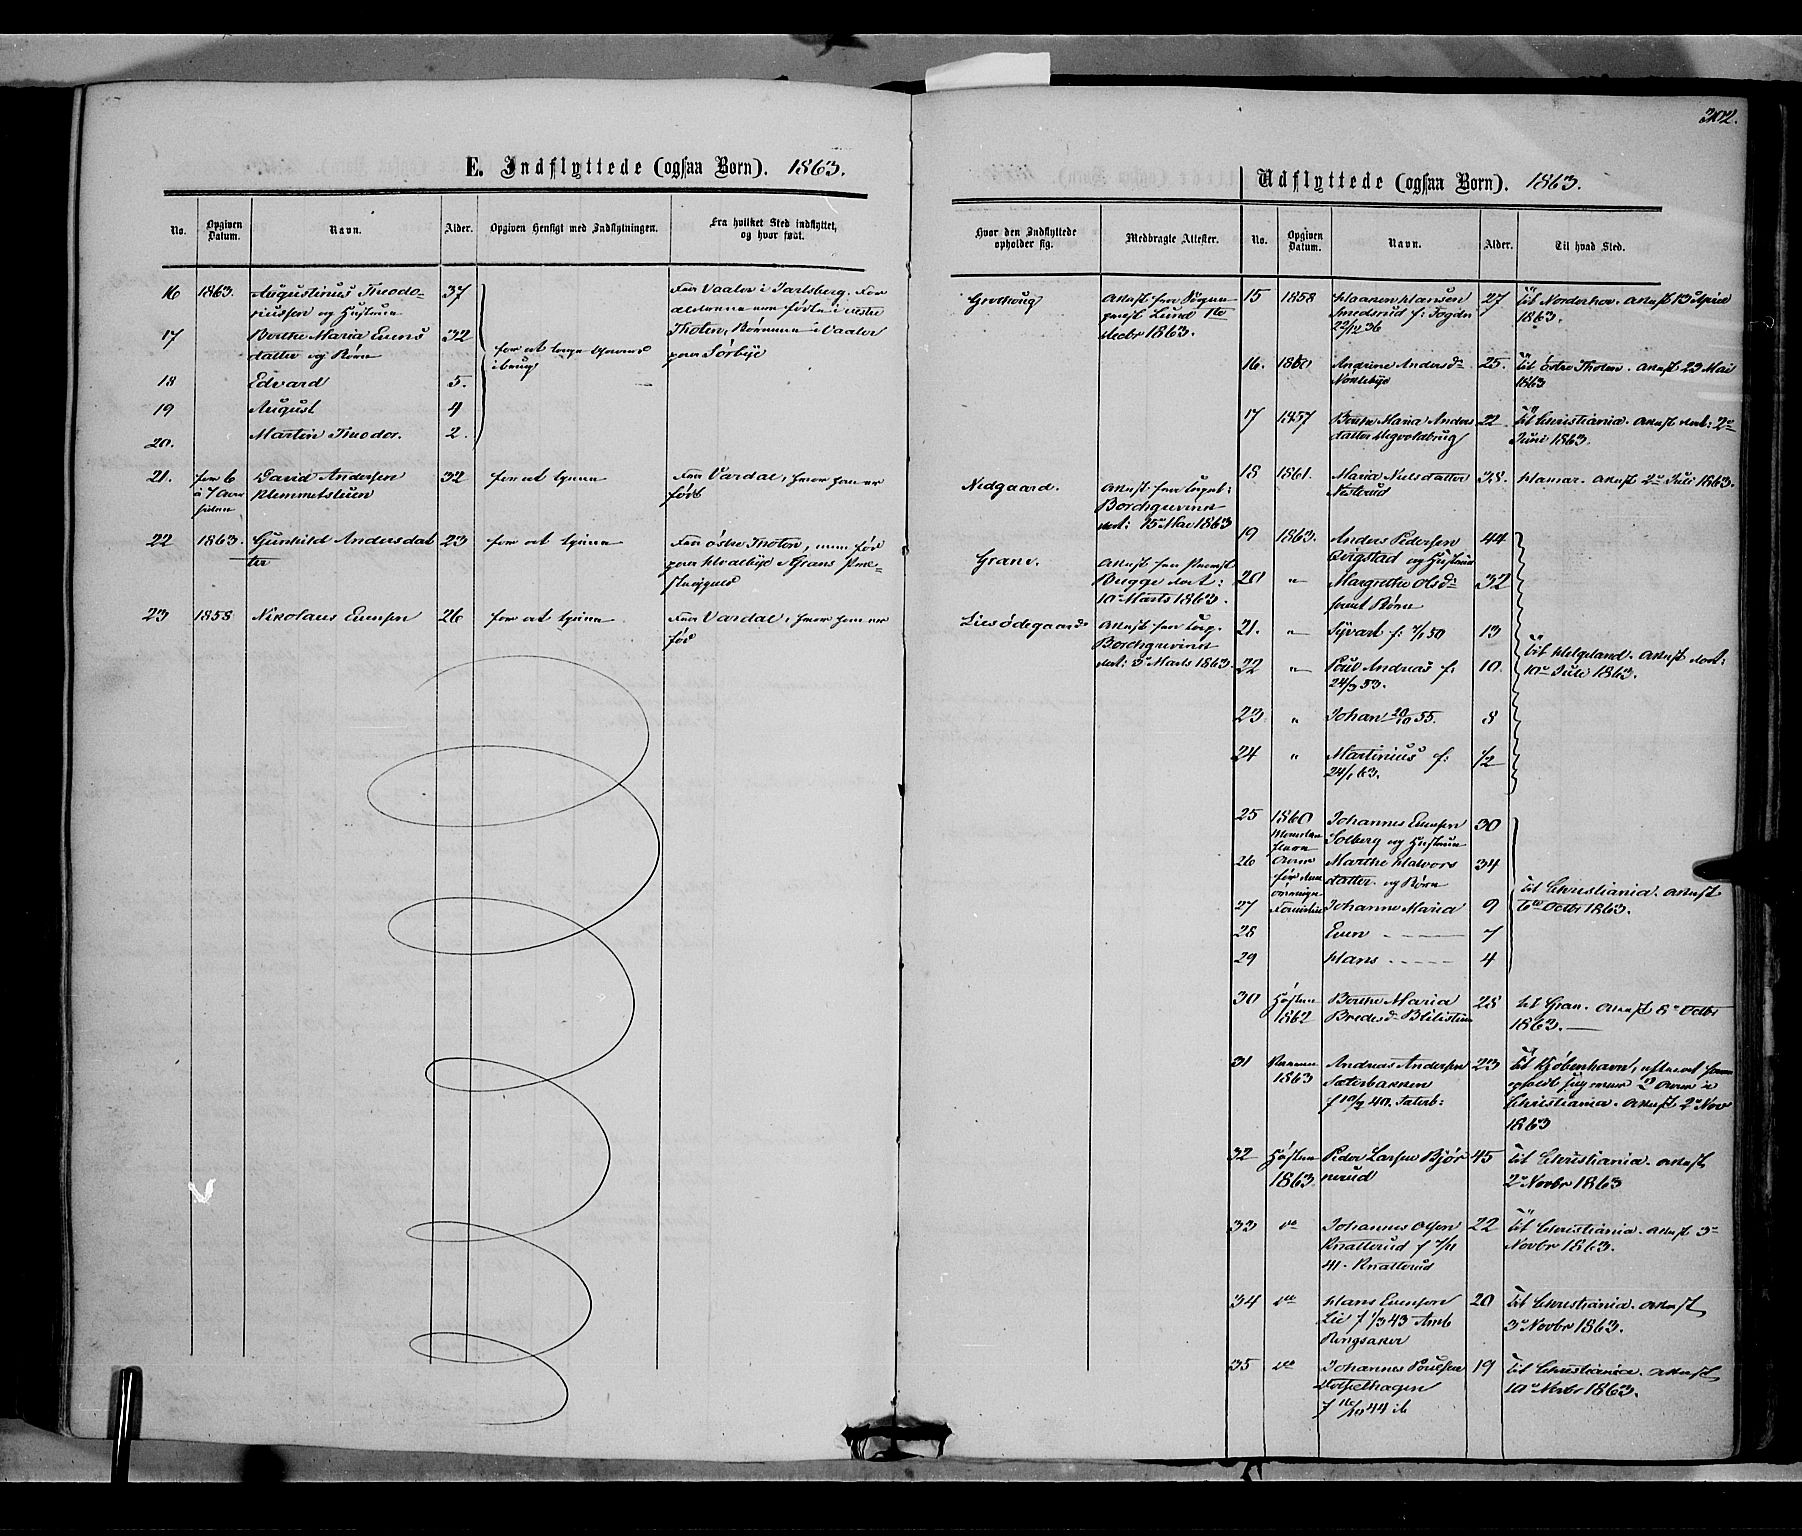 302.
E. Indflyttede (ogsaa Børn). 1863.
No.
Opgiven Datum.
Navn.
Alder.
Opgiven Hensigt med Indflytningen.
Fra hvilket Sted indflyttet, og hvor født.
Hvor den Indflyttede opholder sig.
Medbragte Attester.
16 1863. Augustinus Theodo- 37
riussen og Hustrue
17 Berthe Maria Evens 32
datter og Børn
18 Edvard 5.
19 August 4
20. Martin Theodor. 2.
for at tage Gaard
i brug
Fra Vaaler i Jarlsberg. For
ældrene ere fødte i vestre
Thoten, Børnene i Vaaler
paa Sørbye
Attest fra Sogne
prest Lund 1ste
1863.
21. for 6 David Andersen 32 for at tjene Fra Vardal, hvor han er
à 7 Aar Klemmetstuen født
siden
Nedgaard. Attest fra
Borchgrevink
dat: 15de Mai 1863
22 1863. Gunhild Andersdat 23 for at tjene Fra østre Thoten, men fød
ter paa Hvalebye i Grans Præ-
stegjeld
Grane. Attest fra Provst
Bugge dat:
10 Marts 1863.
23 1858 Nikolaus Evensen 26 for at tjene Fra Vardal, hvor han er
fød
Lies ødegaard Attest fra
Borchgrevink
dat: 3 Marts 1863.
Udflyttede (ogsaa Børn). 1863.
No.
Opgiven Datum.
Navn.
Alder.
Til hvad Sted.
15 1858 Haaren Hansen 27 til Norderhov. Attest 13 April
Smederud f: 1863.
23/12 36
16. 1860 Andrine Andersd 25. til Østre Thoten. Attest 23 Mai
Nøkleby 1863
17 1857 Berthe Maria Anders 22 til Christiania. Attest dat: 2de
datter Juni 1863.
18 1861. Maria Nielsdatter 38. Hamar. Attest 2 Juli 1863.
Nesterud
19 1863. Anders Pedersen 44
og Hustrue
20 " Margrethe Olsd 32
samt Børn
21. " Syvert f: 50 13
22 " Poul Andreas f: 10.
24/3 53.
23 " Johan 20/10 55. 8
24 " Martinius f: 1/2
24/1 63.
til Helgeland. Attest dat:
10 Juli 1863.
25 1860 Johannes Evensen 30
Solberg og Hustrue
26 Marthe Halvors 34
datter og Børn
27 Familie Johanne Maria 9
28 Even 7
29 Hans 4
til Christiania. Attest
6te Octbr 1863.
30 Høsten Berthe Maria 28 til Gran. Attest 8 Octbr
1862 Bredesd Blilistuen 1863.
31 Andreas Andersen 23 til Kjøbenhavn, efter at have
1863 Sæterbakken opholdt sig 2 Aar i
f 10/2 40. Saterb: Christiania. Attest 2 Nov
1863
32 Høsten Peder Larsen Bjør 45 til Christiania. Attest
1863 nerud 2 Novbr 1863
33 do Johannes Olsen 22 til Christiania. Attest 3
Knatterud f 7/11 Novbr 1863.
41. Knatterud
34 do Hans Evensen 20 til Christiania. Attest
Lie f 1/3 43 3 Novbr 1863.
Ringsaker
35 do Johannes Poulsen 19 til Christiania. Attest
10 Novbr 1863.
f 16/10 44 ib